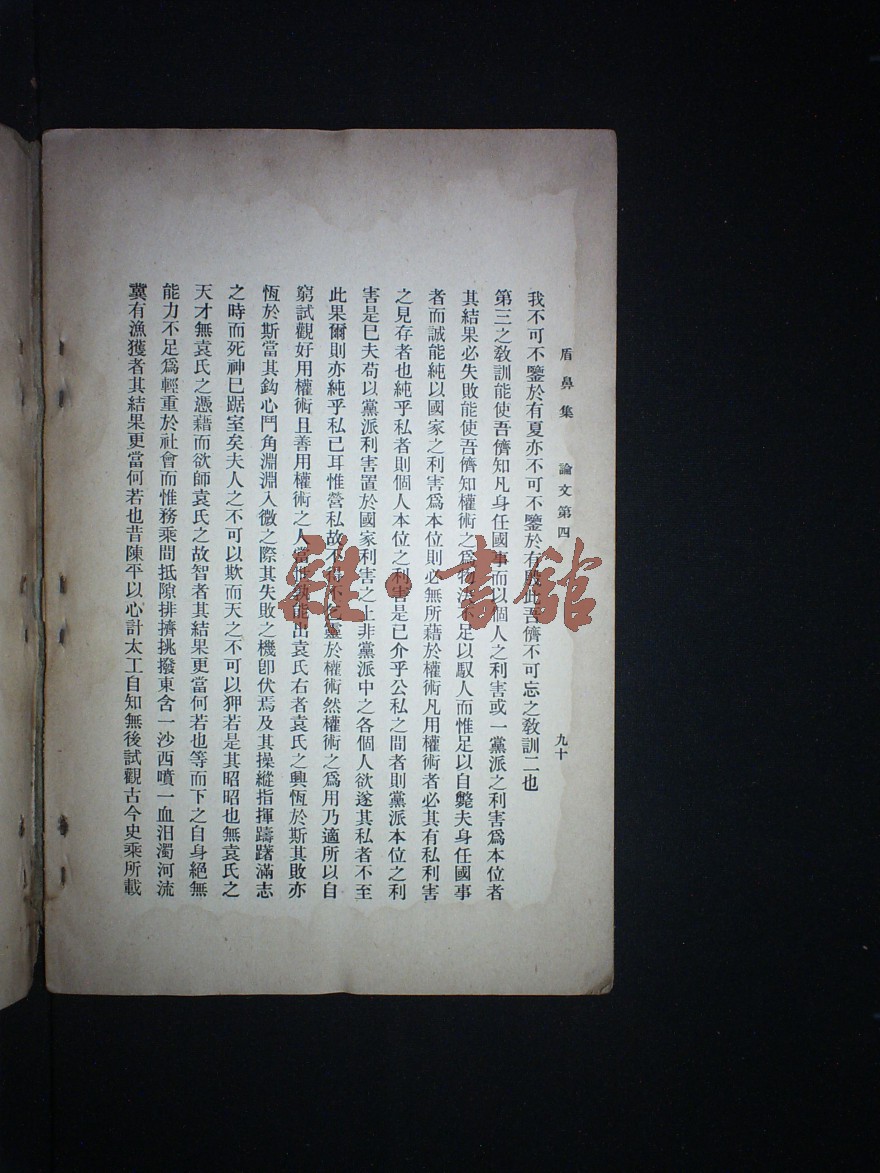 盾鼻集　論文第四　九十
我不可不鑒於有夏亦不可不鑒於有殷此吾儕不可忘之教訓二也
第三之教訓能使吾儕知凡身任國事而以個人之利害或一黨派之利害爲本位者
其結果必失敗能使吾儕知權術之爲物決不足以馭人而惟足以自斃夫身任國事
者而誠能純以國家之利害爲本位則必無所藉於權術凡用權術者必其有私利害
之見存者也純乎私者則個人本位之利害是已介乎公私之間者則黨派本位之利
害是已夫苟以黨派利害置於國家利害之上非黨派中之各個人欲遂其私者不至
此果爾則亦純乎私已耳惟營私故不得不乞靈於權術然權術之爲用乃適所以自
窮試觀好用權術且善用權術之人當世孰能出袁氏右者袁氏之興恆於斯其敗亦
恆於斯當其鈎心鬥角淵淵入微之際其失敗之機卽伏焉及其操縱指揮躊躇滿志
之時而死神已踞室矣夫人之不可以欺而天之不可以狎若是其昭昭也無袁氏之
天才無袁氏之憑藉而欲師袁氏之故智者其結果更當何若也等而下之自身絕無
能力不足爲輕重於社會而惟務乘間抵隙排擠挑撥東含一沙西噴一血汨濁河流
冀有漁獲者其結果更當何若也昔陳平以心計太工自知無後試觀古今史乘所載
雜·書館